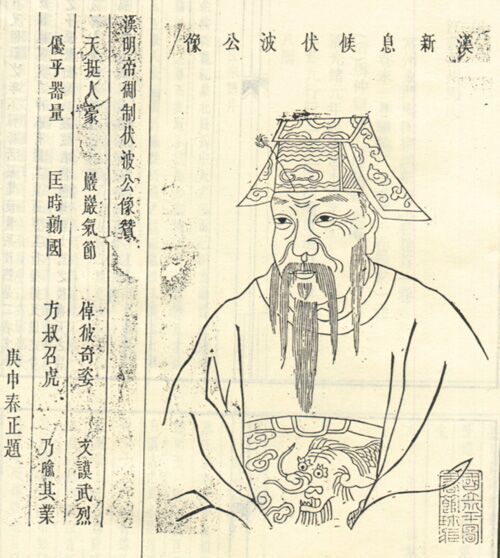 漢新息候伏波公像
漢明帝御制伏波公像贊
天挺人豪 巖巖氣節 倬彼奇姿 文謨武烈
優乎器量 匡時國 方叔召虎 乃喻其業
庚申春正題
國立北平圖
書館珍藏